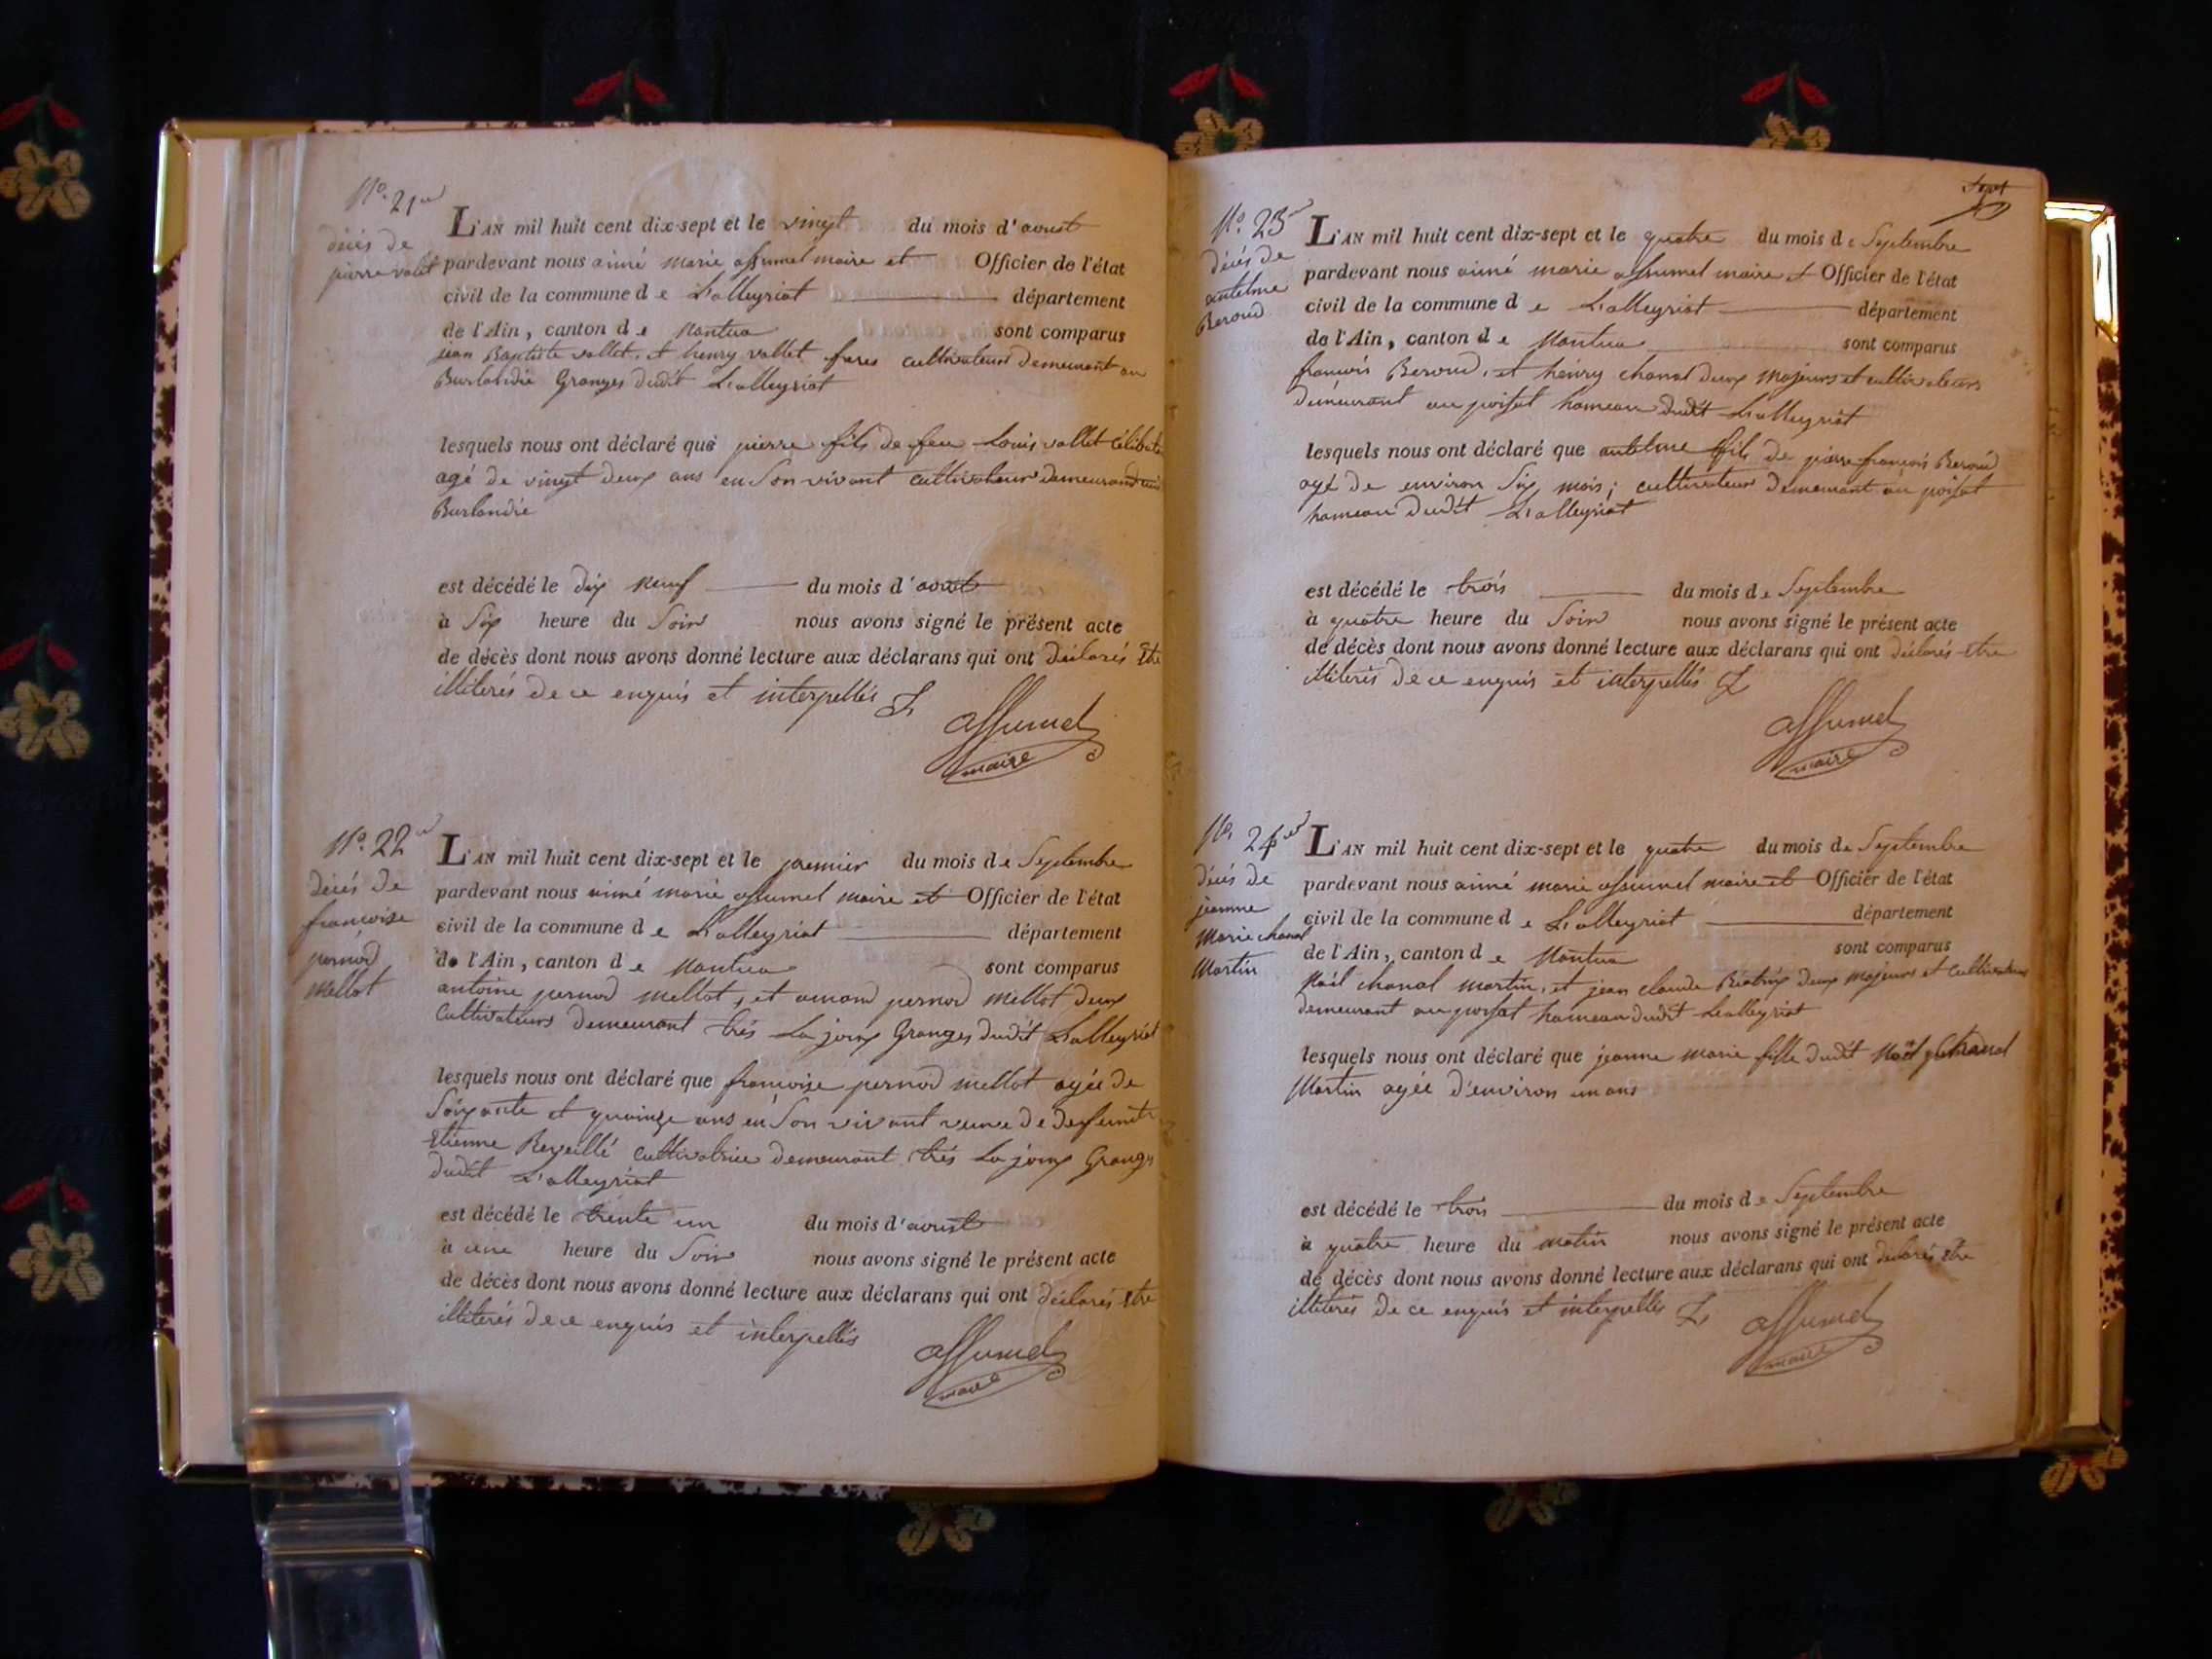 No. 21
décés de
pierre valet
L'AN mil huit cent dix-sept et le vingt du mois d'aoust
pardevant nous aimé marie assumel maire et Officier de l'état
civil de la commune de L'alleyriat département
de l'Ain, canton de Nantua sont comparus
jean Baptiste vallet, et henry vallet freres cultivateurs demeurant en
Burlandié Granges dudit L'alleyriat
lesquels nous ont déclaré que pierre fils de feu Louis vallet
agé de vingt deux ans en Son vivant cultivateur demeurand
Burlandié
est décédé le dix neuf du mois d'aoust
à Six heure du Soir nous avons signé le présent acte
de décès dont nous avons donné lecture aux déclarans qui ont déclarés Etre
illiterés de ce enquis et interpellés
assumel
maire
No. 22
décés de
françoise
pernod
mellot
L'AN mil huit cent dix-sept et le premier du mois de Septembre
pardevant nous aimé marie assumel maire et Officier de l'état
civil de la commune de L'alleyriat département
de l'Ain, canton de Nantua sont comparus
antoine pernod mellot, et amand pernod mellot deux
cultivateurs demeurant trés La joux Granges dudit L'alleyriat
lesquels nous ont déclaré que françoise pernod mellot agée de
Soixante et quainze ans en Son vivant veuve de defunt
Etienne Reveillé cultivatrice demeurant trés La joux Granges
dudit L'alleyriat
est décédé le trente un du mois d'aoust
à une heure du Soir nous avons signé le présent acte
de décès dont nous avons donné lecture aux déclarans qui ont déclarés Etre
illiterés de ce enquis et interpellés
assumel
maire
No. 23
décés de
antelme
Beroud
L'AN mil huit cent dix-sept et le quatre du mois de Septembre
pardevant nous aimé marie assumel maire et Officier de l'état
civil de la commune de L'alleyriat département
de l'Ain, canton de Nantua sont comparus
françois Beroud, et hénry chanal deux majeurs et cultivateurs
demeurant au poisat hameau dudit L'alleyriat
lesquels nous ont déclaré que antelme fils de pierre françois Beroud
agé de environ Six mois; cultivateur demeurant au poisat
hameau dudit L'alleyriat
est décédé le trois du mois de Septembre
à quatre heure du Soir nous avons signé le présent acte
de décès dont nous avons donné lecture aux déclarans qui ont déclarés etre
illiterés de ce enquis et interpellés
assumel
maire
No. 24
décés de
jeanne
marie chanal
martin
L'AN mil huit cent dix-sept et le quatre du mois de Septembre
pardevant nous aimé marie assumel maire et Officier de l'état
civil de la commune de L'alleyriat département
de l'Ain, canton de Nantua sont comparus
Noël chanal martin, et jean claude Béatrix deux majeurs et cultivateurs
demeurant au poisat hameau dudit L'alleyriat
lesquels nous ont déclaré que jeanne marie fille dudit Noël chanal
Martin agée d'environ un ans
est décédé le trois du mois de Septembre
à quatre heure du matin nous avons signé le présent acte
de décès dont nous avons donné lecture aux déclarans qui ont déclarés etre
illiterés de ce enquis et interpellés
assumel
maire